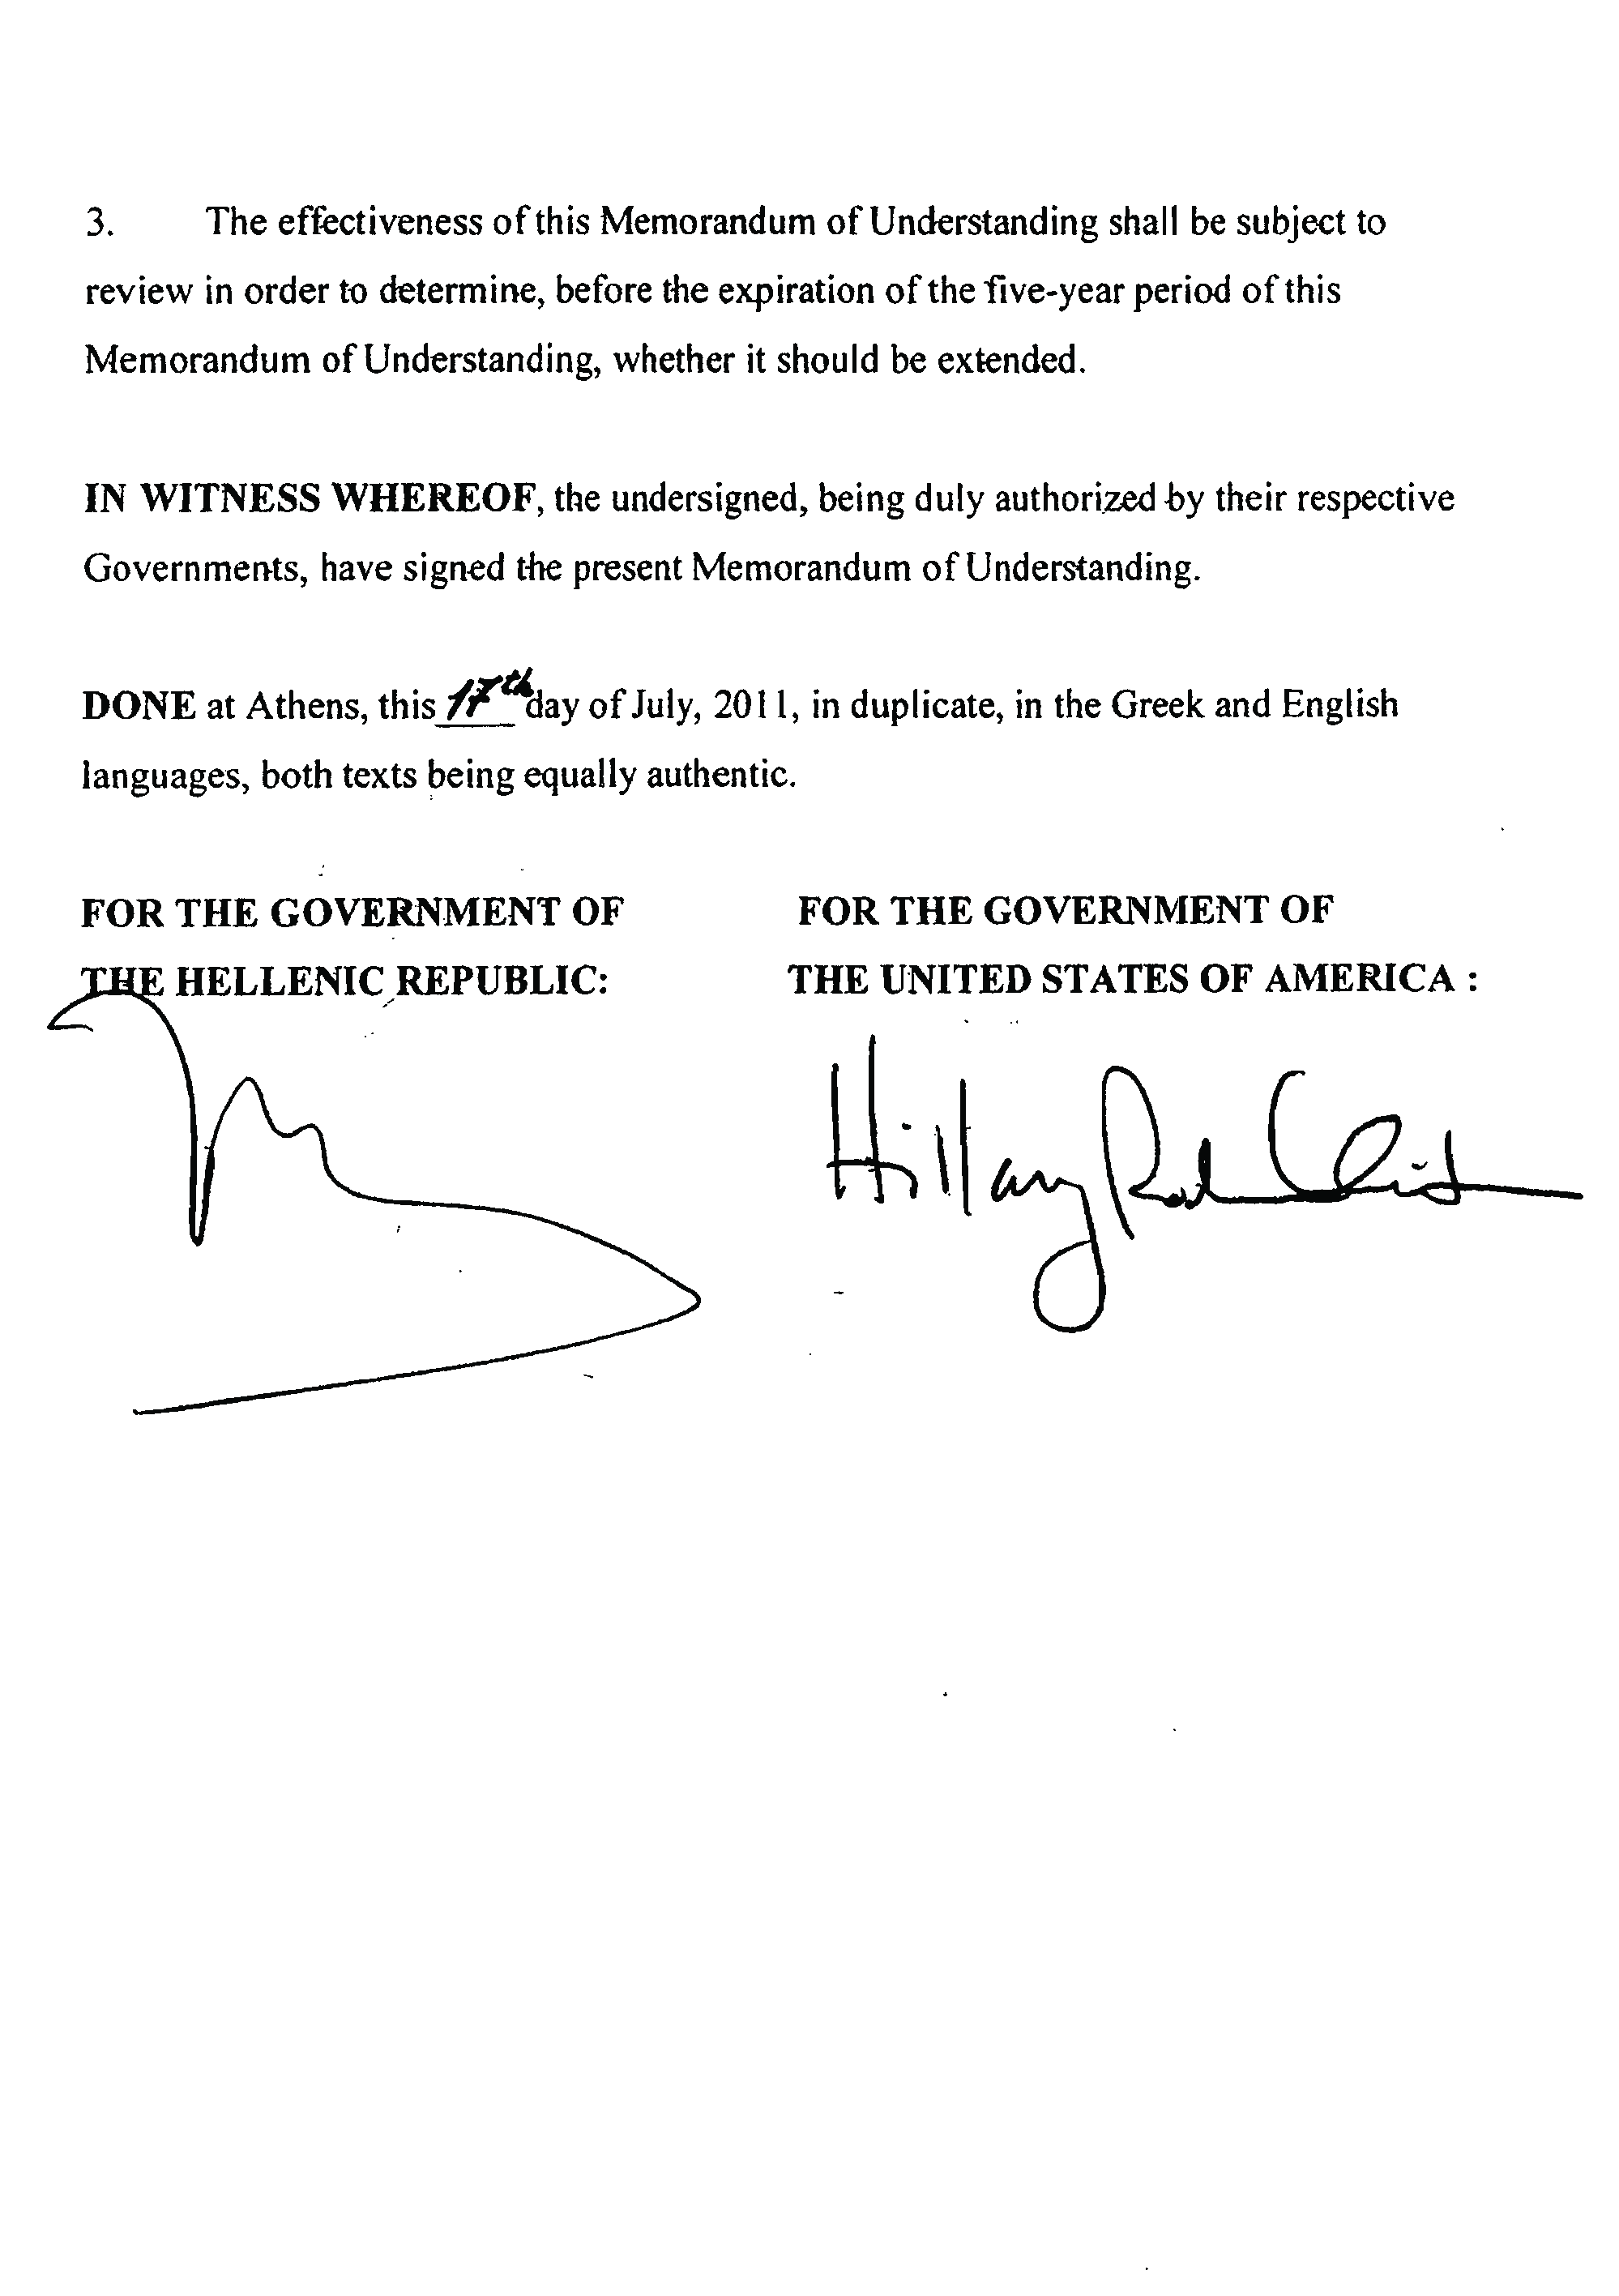 3. The effectiveness of this Memorandum of Understanding shall be subject to
review in order to determine, before the expiration of the five-year period of this
Memorandum of Understanding, whether it should be extended.
IN WITNESS WHEREOF, the undersigned, being duly authorized by their respective
Governments, have signed the present Memorandum of Understanding.
DONE at Athens, this 17th day of July, 2011, in duplicate, in the Greek and English
languages, both texts being equally authentic.
FOR THE GOVERNMENT OF
THE HELLENIC REPUBLIC:
FOR THE GOVERNMENT OF
THE UNITED STATES OF AMERICA :
Hillary Rod Clint